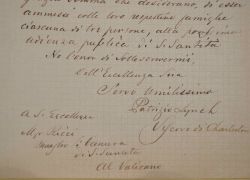 che desiderano, di esser
ammessi colle loro respettive famiglie
ciascuna di tre persone, alla prossima
udienza publica di S. Santità
Ho l'onor di sottoscrivermi
Dell'Eccellenza Sua
Servo Umilissimo
Patrizio Lynch
Vescovo di Charleston
A S. Eccellenza
Mgr Ricci
Maestro di Camera
di S. Santità
Al Vaticano